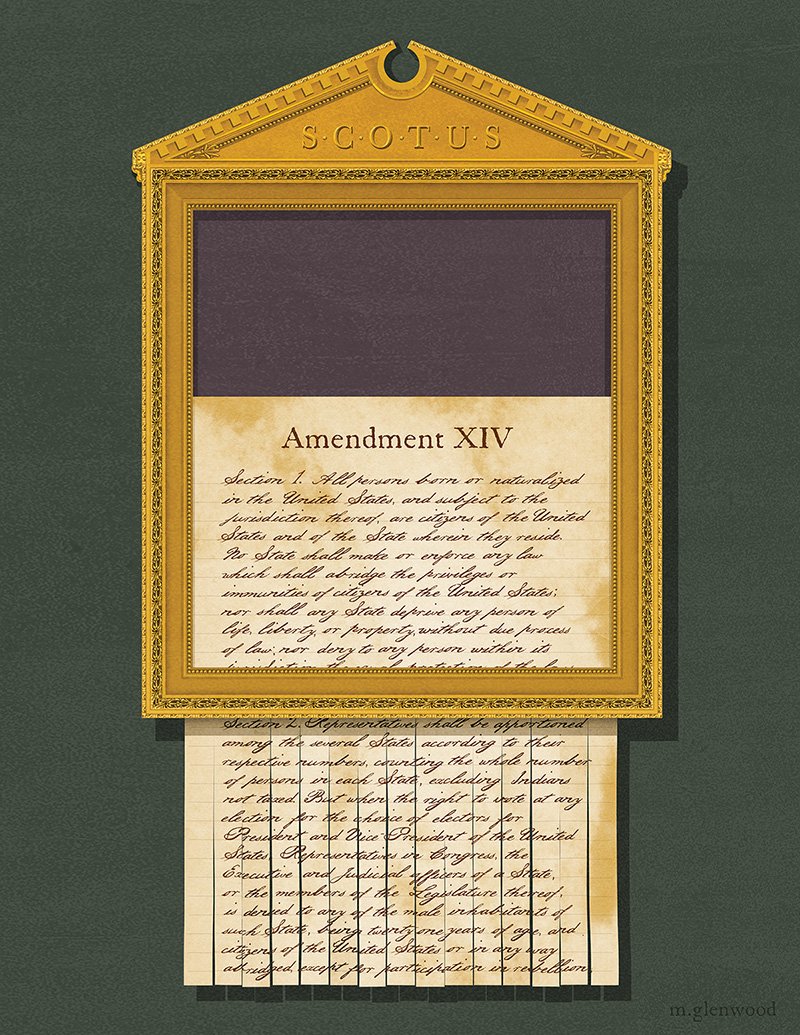 S·C·O·T·U·S
Amendment XIV
Section 1. All persons born or naturalized
in the United States, and subject to the
jurisdiction thereof, are citizens of the United
States and of the State wherein they reside.
No State shall make or enforce any law
which shall abridge the privileges or
immunities of citizens of the United States;
nor shall any State deprive any person of
life, liberty, or property, without due process
of law; nor deny to any person within its
jurisdiction the equal protection of the laws.
Section 2. Representatives shall be apportioned
among the several States according to their
respective numbers, counting the whole number
of persons in each State, excluding Indians
not taxed. But when the right to vote at any
election for the choice of electors for
President and Vice President of the United
States, Representatives in Congress, the
Executive and Judicial officers of a State,
or the members of the Legislature thereof,
is denied to any of the male inhabitants of
such State, being twenty-one years of age, and
citizens of the United States or in any way
abridged, except for participation in rebellion,
m.glenwood